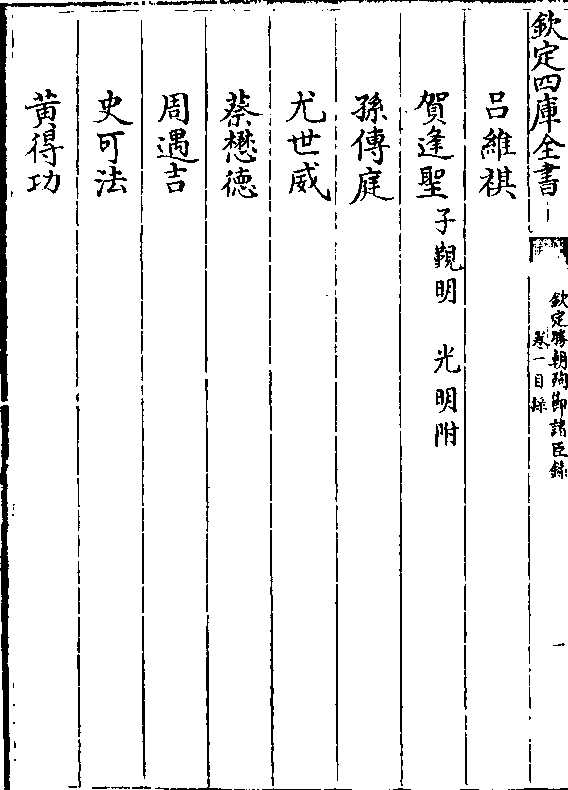 欽定四庫全書
欽定勝朝殉節諸臣錄
卷一目錄
一
呂維祺
賀逢聖子覲明 光明附
孫傳庭
尤世威
蔡懋德
周遇吉
史可法
黃得功